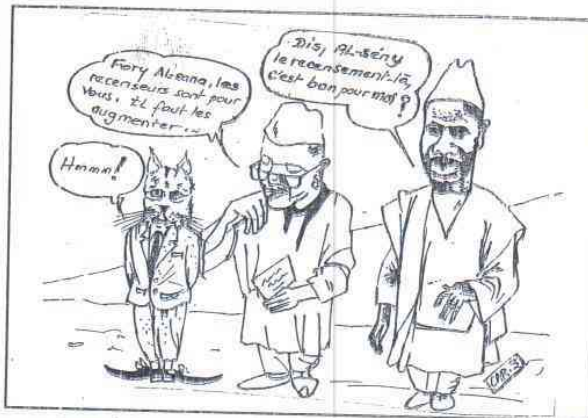 Hmmm!
Fory Alsana, les
recenseurs sont pour
vous. Il faut les
augmenter...
Dis, AL-Sény
le recensement-là,
c'est bon pour moi?